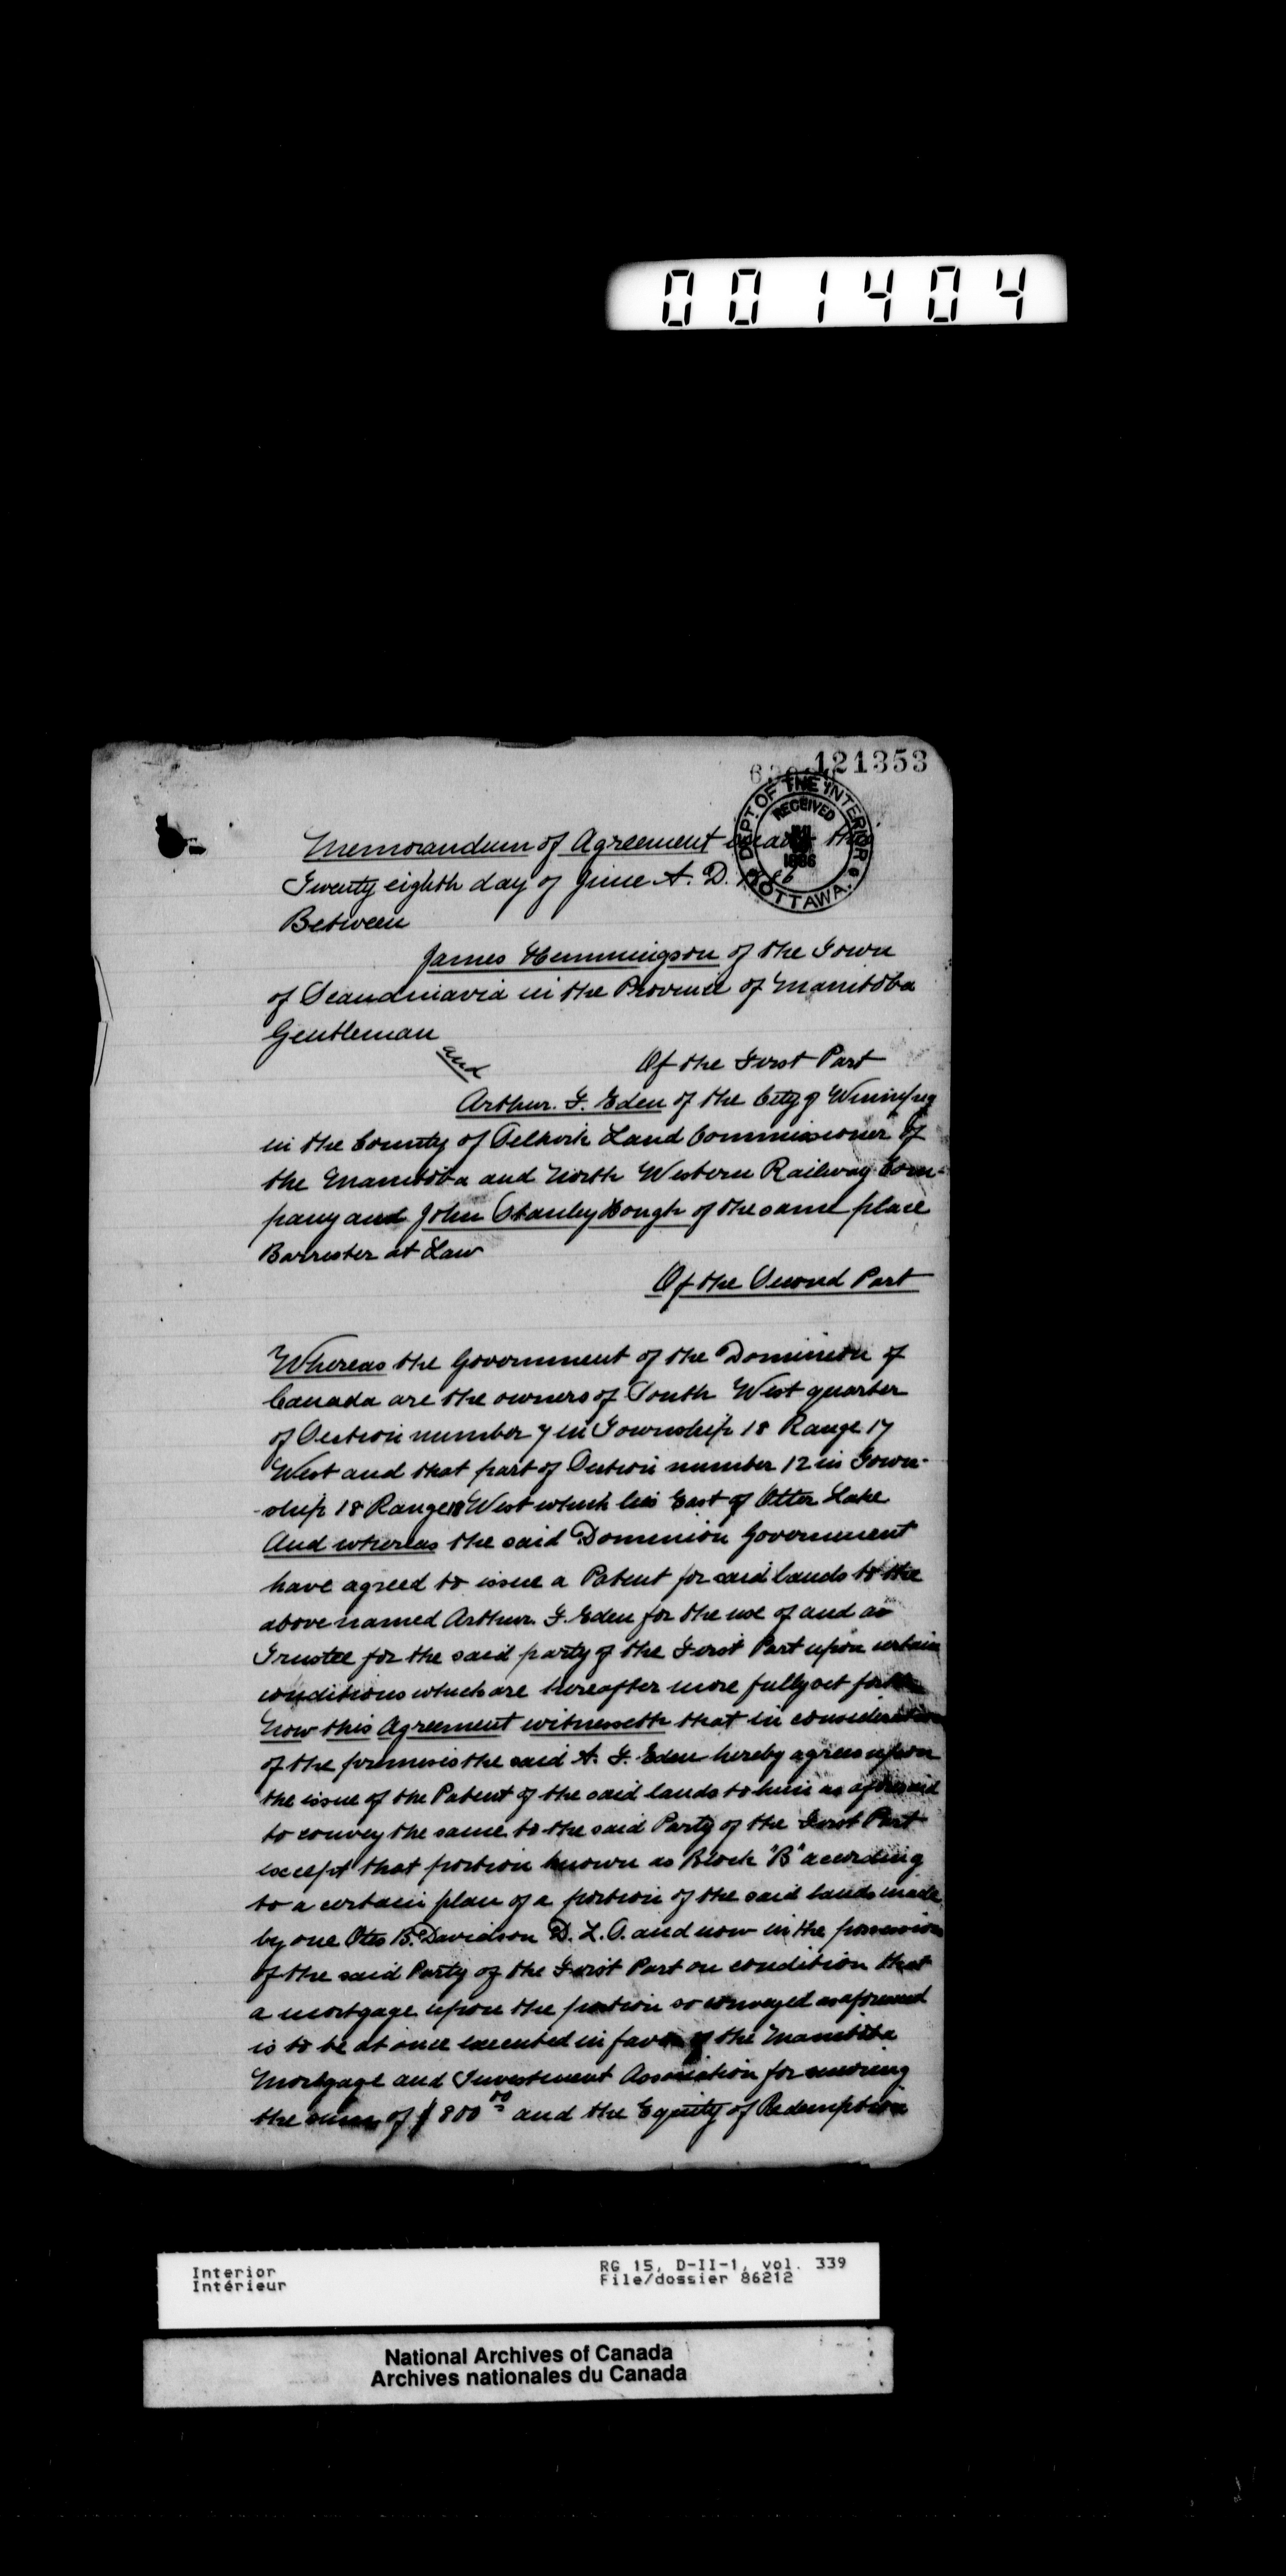 001404
121353
DEPT. OF THE INTERIOR
RECEIVED
1886
OTTAWA.
Memorandum of Agreement made this
Twenty eighth day of June A. D. 1886
Between
James Hemmingson of the Town
of Scandinavia in the Province of Manitoba
Gentleman
and
Of the First Part
Arthur. F. Eden of the City of Winnipeg
in the County of Selkirk Land Commissioner of
the Manitoba and North Western Railway Com-
pany and John Stanley Hough of the same place
Barrister at Law
Of the Second Part
Whereas the Government of the Dominion of
Canada are the owners of South West quarter
of Section number 7 in Township 18 Range 17
West and that part of Section number 12 in Town-
-ship 18 Range 18 West which lies East of Otter Lake
And whereas the said Dominion Government
have agreed to issue a Patent for said lands to the
above named Arthur. F. Eden for the use of and as
Trustee for the said party of the First Part upon certain
conditions which are hereafter more fully set forth
Now this Agreement witnesseth that in consideration
of the premises the said A. F. Eden hereby agrees upon
the issue of the Patent of the said lands to him as aforesaid
to convey the same to the said Party of the First Part
except that portion known as Block "B" according
to a certain plan of a portion of the said lands made
by one Otto B. Davidson D. L. S. and now in the possession
of the said Party of the First Part on condition that
a mortgage upon the portion so conveyed as aforesaid
is to be at once executed in favor of the Manitoba
Mortgage and Investment Association for securing
the sum of $800 00 and the Equity of Redemption
Interior
Intérieur
RG 15, D-II-1, vol. 339
File/dossier 86212
National Archives of Canada
Archives nationales du Canada